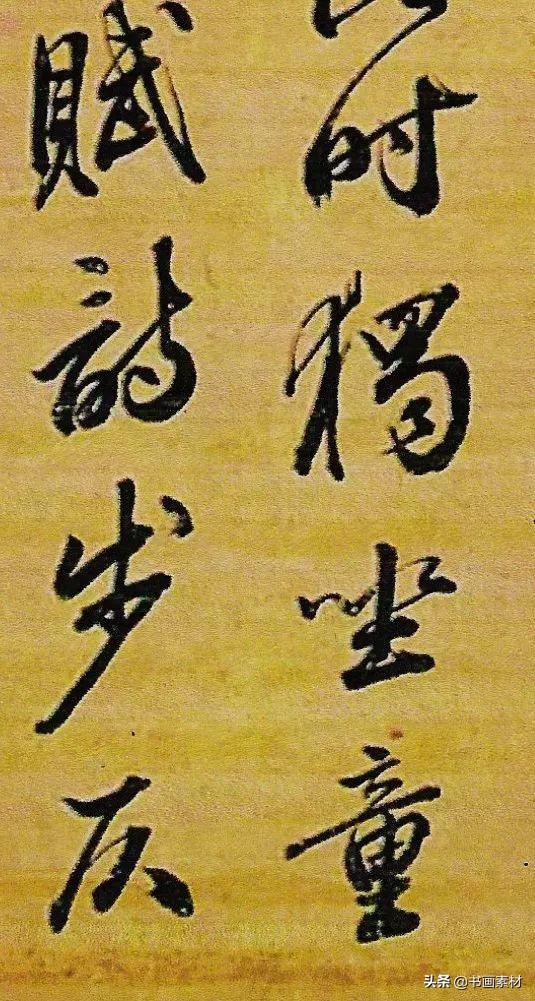 时獨坐童
賦詩步仄
头条 @书画素材